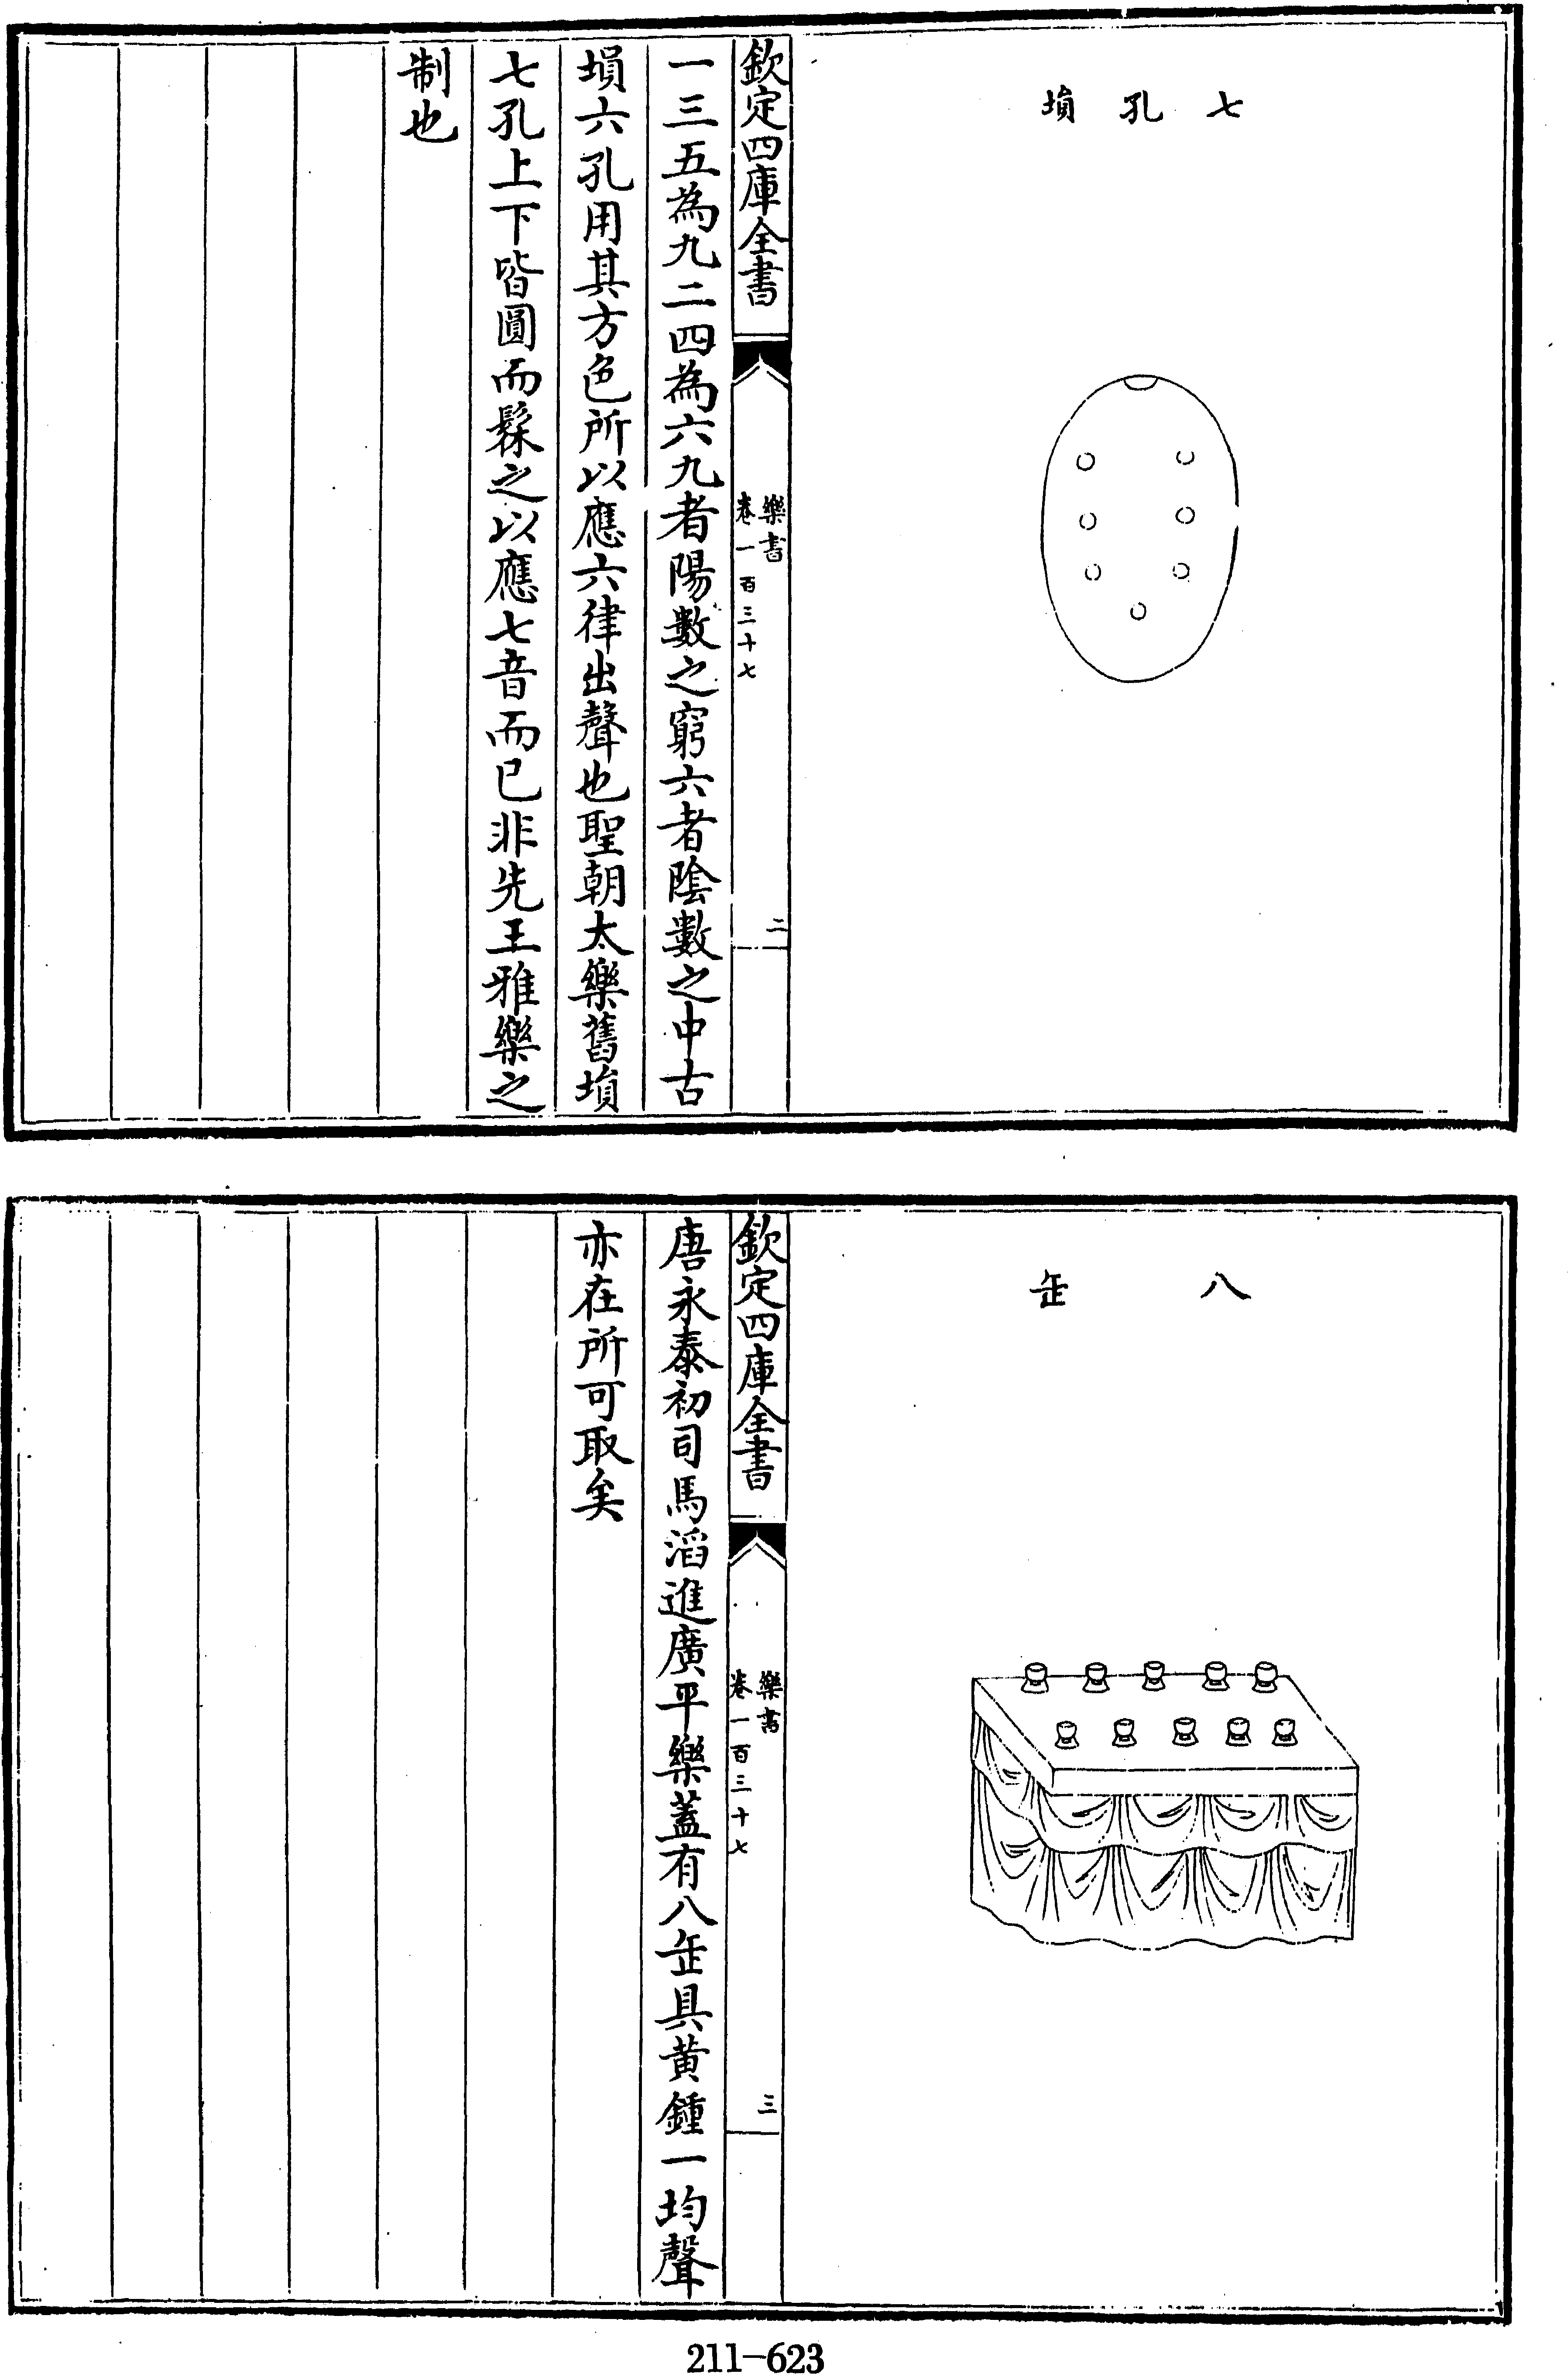 七孔塤
欽定四庫全書
樂書
卷一百三十七
二
一三五為九二四為六九者陽數之窮六者陰數之中古
塤六孔用其方色所以應六律出聲也聖朝太樂舊塤
七孔上下皆圓而髹之以應七音而已非先王雅樂之
制也
八缶
欽定四庫全書
樂書
卷一百三十七
三
唐永泰初司馬滔進廣平樂蓋有八缶具黄鍾一均聲
亦在所可取矣
211-623